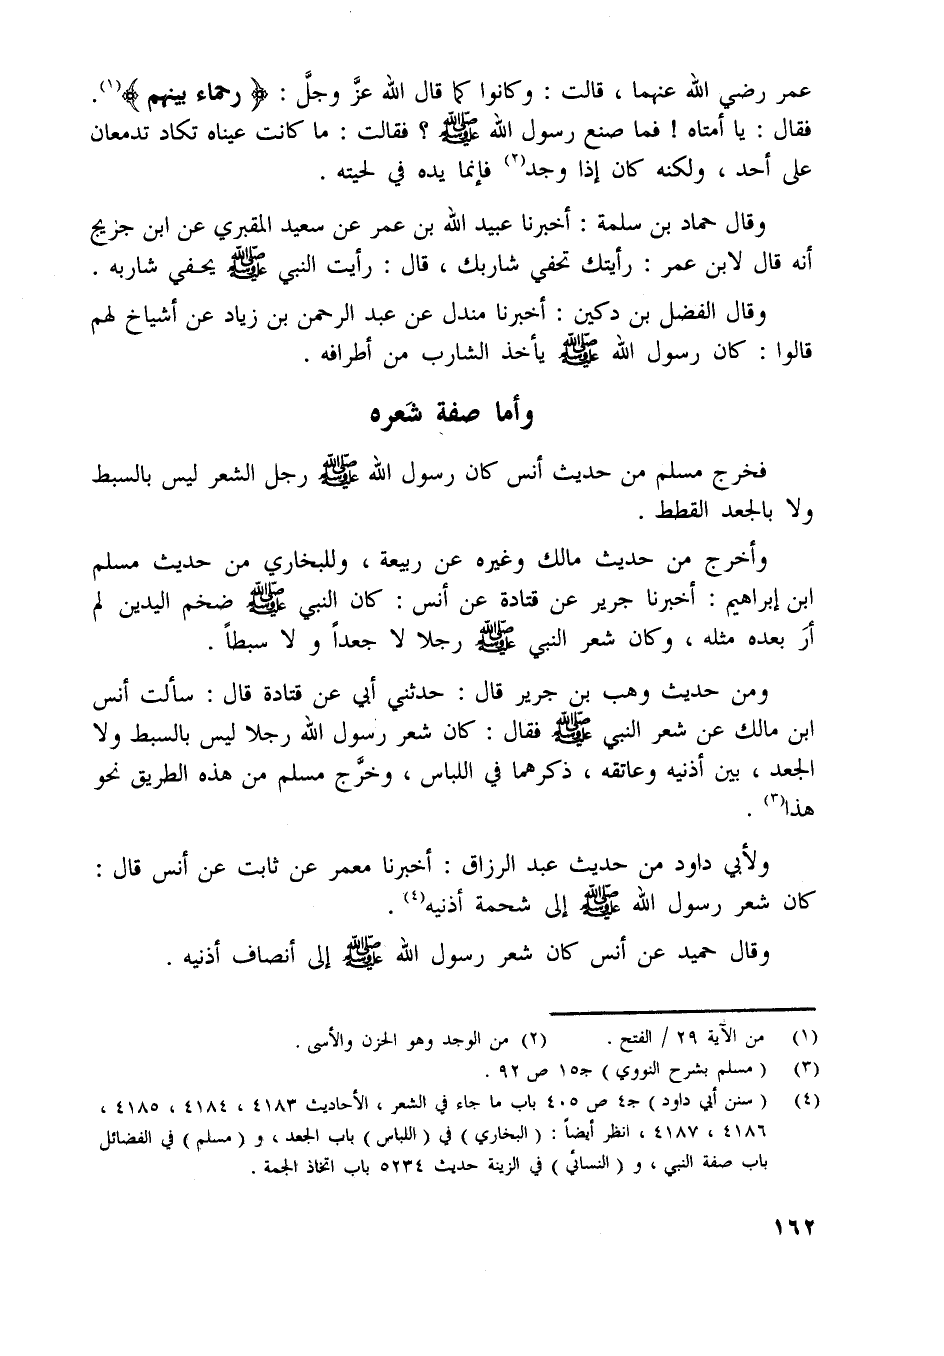 عمر رضي الله عنهما ، قالت : وكانوا كما قال الله عزَّ وجلَّ : ﴿ رحماء بينهم ﴾(١).
فقال : يا أمتاه ! فما صنع رسول الله ﷺ ؟ فقالت : ما كانت عيناه تكاد تدمعان
على أحد ، ولكنه كان إذا وجد(٢) فإنما يده في لحيته .
وقال حماد بن سلمة : أخبرنا عبيد الله بن عمر عن سعيد المقبري عن ابن جريج
أنه قال لابن عمر : رأيتك تحفي شاربك ، قال : رأيت النبي ﷺ يحفي شاربه .
وقال الفضل بن دكين : أخبرنا مندل عن عبد الرحمن بن زياد عن أشياخ لهم
قالوا : كان رسول الله ﷺ يأخذ الشارب من أطرافه .
وأما صفة شَعره
فخرج مسلم من حديث أنس كان رسول الله ﷺ رجل الشعر ليس بالسبط
ولا بالجعد القطط .
وأخرج من حديث مالك وغيره عن ربيعة ، وللبخاري من حديث مسلم
ابن إبراهيم : أخبرنا جرير عن قتادة عن أنس : كان النبي ﷺ ضخم اليدين لم
أرَ بعده مثله ، وكان شعر النبي ﷺ رجلا لا جعداً و لا سبطاً .
ومن حديث وهب بن جرير قال : حدثني أبي عن قتادة قال : سألت أنس
ابن مالك عن شعر النبي ﷺ فقال : كان شعر رسول الله رجلا ليس بالسبط ولا
الجعد ، بين أذنيه وعاتقه ، ذكرهما في اللباس ، وخرَّج مسلم من هذه الطريق نحو
هذا(٣) .
ولأبي داود من حديث عبد الرزاق : أخبرنا معمر عن ثابت عن أنس قال :
كان شعر رسول الله ﷺ إلى شحمة أذنيه(٤) .
وقال حميد عن أنس كان شعر رسول الله ﷺ إلى أنصاف أذنيه .
(١) من الآية ٢٩ / الفتح . (٢) من الوجد وهو الحزن والأسى .
(٣) ( مسلم بشرح النووي ) جـ١٥ ص ٩٢ .
(٤) ( سنن أبي داود ) جـ٤ ص ٤٠٥ باب ما جاء في الشعر ، الأحاديث ٤١٨٣ ، ٤١٨٤ ، ٤١٨٥ ،
٤١٨٦ ، ٤١٨٧ ، انظر أيضاً : ( البخاري ) في ( اللباس ) باب الجعد ، و ( مسلم ) في الفضائل
باب صفة النبي ، و ( النسائي ) في الزينة حديث ٥٢٣٤ باب اتخاذ الجمة .
١٦٢